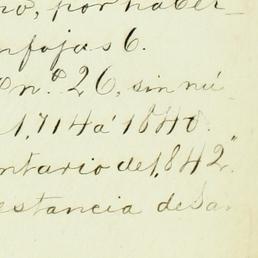 no, por haber_
nfojas 6.
n.o 26, sin nú_
1,714 á 1840.
ntario de 1,842"
estancia de Sa